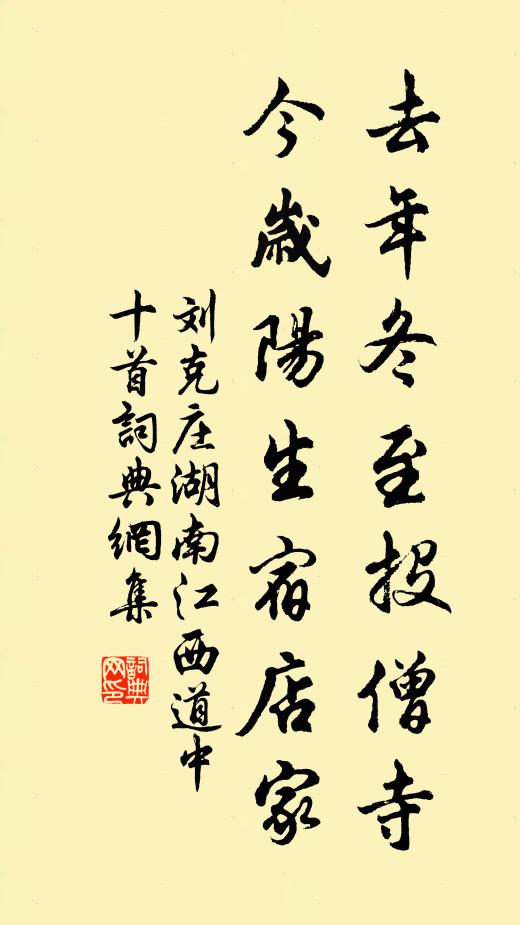 去年冬至投僧寺
今歲陽生宿店家
刘克庄湖南江西道中
十首詞典網集
詞典
网印